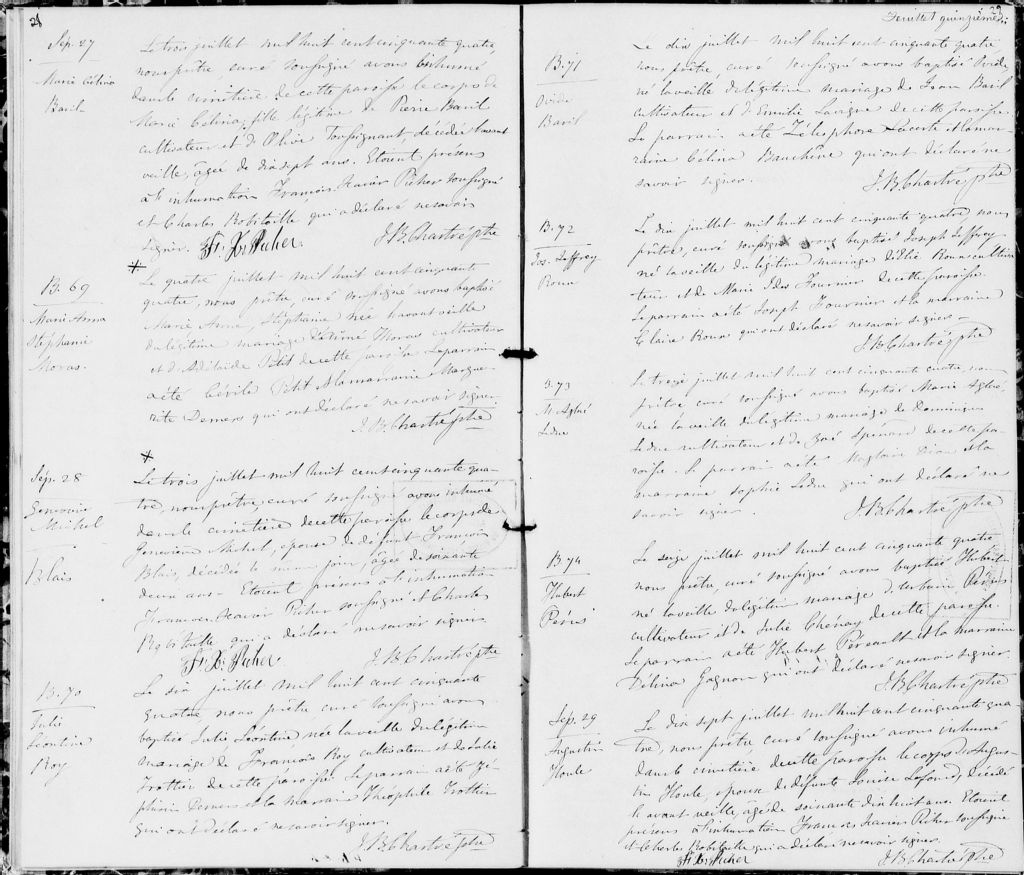 28
Sep. 27
Marie Célina
Baril
Le trois juillet mil huit cent cinquante quatre,
nous prêtre, curé soussigné avons inhumé
dans le cimetière de cette paroisse le corps de
Marie Célina, fille légitime de Pierre Baril
cultivateur et d'Olive Toussignant décédée l'avant
veille, âgée de dix sept ans. Etoient présens
à l'inhumation François Xavier Picher soussigné
et Charles Robitaille qui a déclaré ne savoir
signer. F. X. Picher. J. B. Chartré ptre
B. 69
Marie Anna
Stéphanie
Moras.
Le quatre juillet mil huit cent cinquante
quatre, nous prêtre, curé soussigné avons baptisé
Marie Anne, Stéphanie née l'avant veille
du légitime mariage d' Moras cultivateur
et d'Adélaïde Petit de cette paroisse. Le parrain
a été Petit & la marraine Margue-
rite Demers qui ont déclaré ne savoir signer.
J. B. Chartré ptre
Sép. 28
Genevieve
Michel
Blais
Le trois juillet mil huit cent cinquante qua-
tre, nous prêtre, curé soussigné avons inhumé
dans le cimetière de cette paroisse le corps de
Genevieve Michel, epouse de défunt François
Blais, décédée le juin, âgée de soixante
deux ans. Etoient présens à l'inhumation
Francois Xavier Picher soussigné & Charles
Robitaille qui a déclaré ne savoir signer.
F. X. Picher J. B. Chartré ptre
B. 70
Julie
Léontine
Roy
Le dix juillet mil huit cent cinquante
quatre nous prêtre curé soussigné avons
baptisé Julie Léontine, née la veille du légitime
mariage de François Roy cultivateur et de Julie
Trottier de cette paroisse. Le parrain a été Zé-
phirin Demers et la marraine Théophile Trottier
qui ont déclaré ne savoir signer.
J. B. Chartré ptre
29
Feuillet quinzième
B. 71
Ovide
Baril
Le dix juillet mil huit cent cinquante quatre,
nous prêtre, curé soussigné avons baptisé Ovide,
né la veille du légitime mariage de Baril
cultivateur et d'Emilie Lavigne de cette paroisse.
Le parrain a été Télesphore Lacerte & la mar-
raine Célina Bauchêne qui ont déclaré ne
savoir signer.
J. B. Chartré ptre
B. 72
Jos. Jeffrey
Roux
Le dix juillet mil huit cent cinquante quatre nous
prêtre, curé soussigné avons baptisé Joseph Jeffrey
né la veille du légitime mariage d'Elie Roux cultiva-
teur et de Marie Fournier de cette paroisse.
Le parrain a été Joseph Fournier et la marraine
Claire Roux qui ont déclaré ne savoir signer.
J. B. Chartré ptre
B. 73
M. Aglaé
Leduc
Le treize juillet mil huit cent cinquante quatre, nous
prêtre curé soussigné avons baptisé Marie Aglaé,
née la veille du légitime mariage de Dominique
Leduc cultivateur et de Zoé Spénard de cette pa-
roisse. Le parrain a été Magloire Dion et la
marraine Sophie Leduc qui ont déclaré ne
savoir signer.
J. B. Chartré ptre
B. 74
Hubert
Péris
Le seize juillet mil huit cent cinquante quatre
nous prêtre, curé soussigné avons baptisé Hubert
né la veille du légitime mariage d'
cultivateur et de Julie Chénay de cette paroisse.
Le parrain a été Hubert Péreault et la marraine
Délina Gagnon qui ont déclaré ne savoir signer.
J. B. Chartré ptre
Sép. 29
Augustin
Houle
Le dix sept juillet mil huit cent cinquante qua-
tre, nous prêtre, curé soussigné avons inhumé
dans le cimetière de cette paroisse le corps d'Augus-
tin Houle, epoux de défunte Louise Lafond, décédé
l'avant veille, âgé de soixante dix huit ans. Etoient
présens à l'inhumation François Xavier Picher soussigné
et Charles Robitaille qui a déclaré ne savoir signer.
F. X. Picher J. B. Chartré ptre